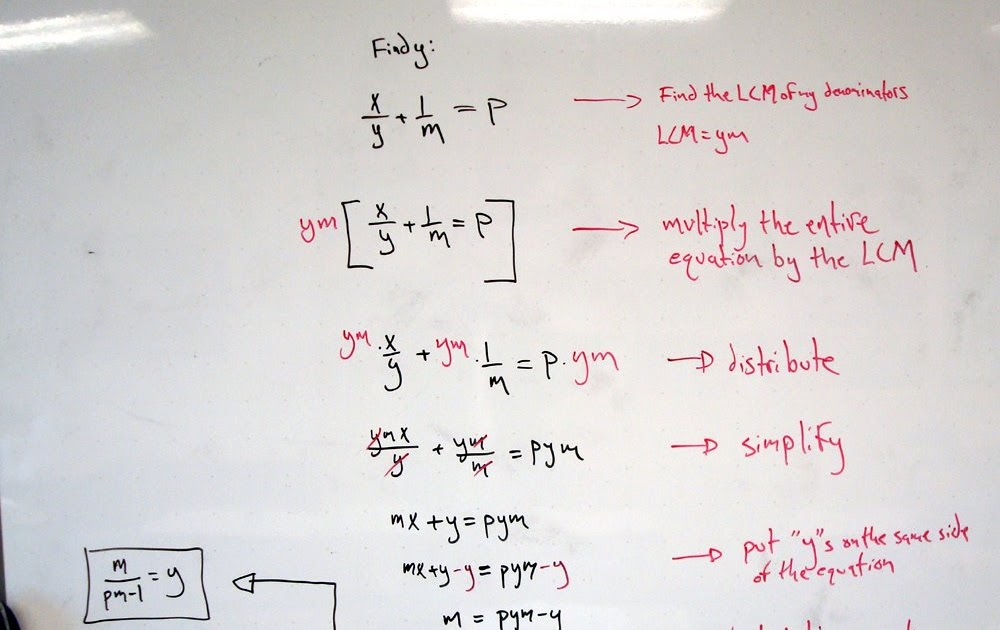 Find y:
x/y + 1/m = P → Find the LCM of my denominators
LCM = ym
ym [ x/y + 1/m = P ] → multiply the entire
equation by the LCM
ym · x/y + ym · 1/m = P · ym → distribute
ymx/y + ym/m = pym → simplify
mx + y = pym
mx + y - y = pym - y → put "y"s on the same side
of the equation
m = pym - y
m/pm-1 = y